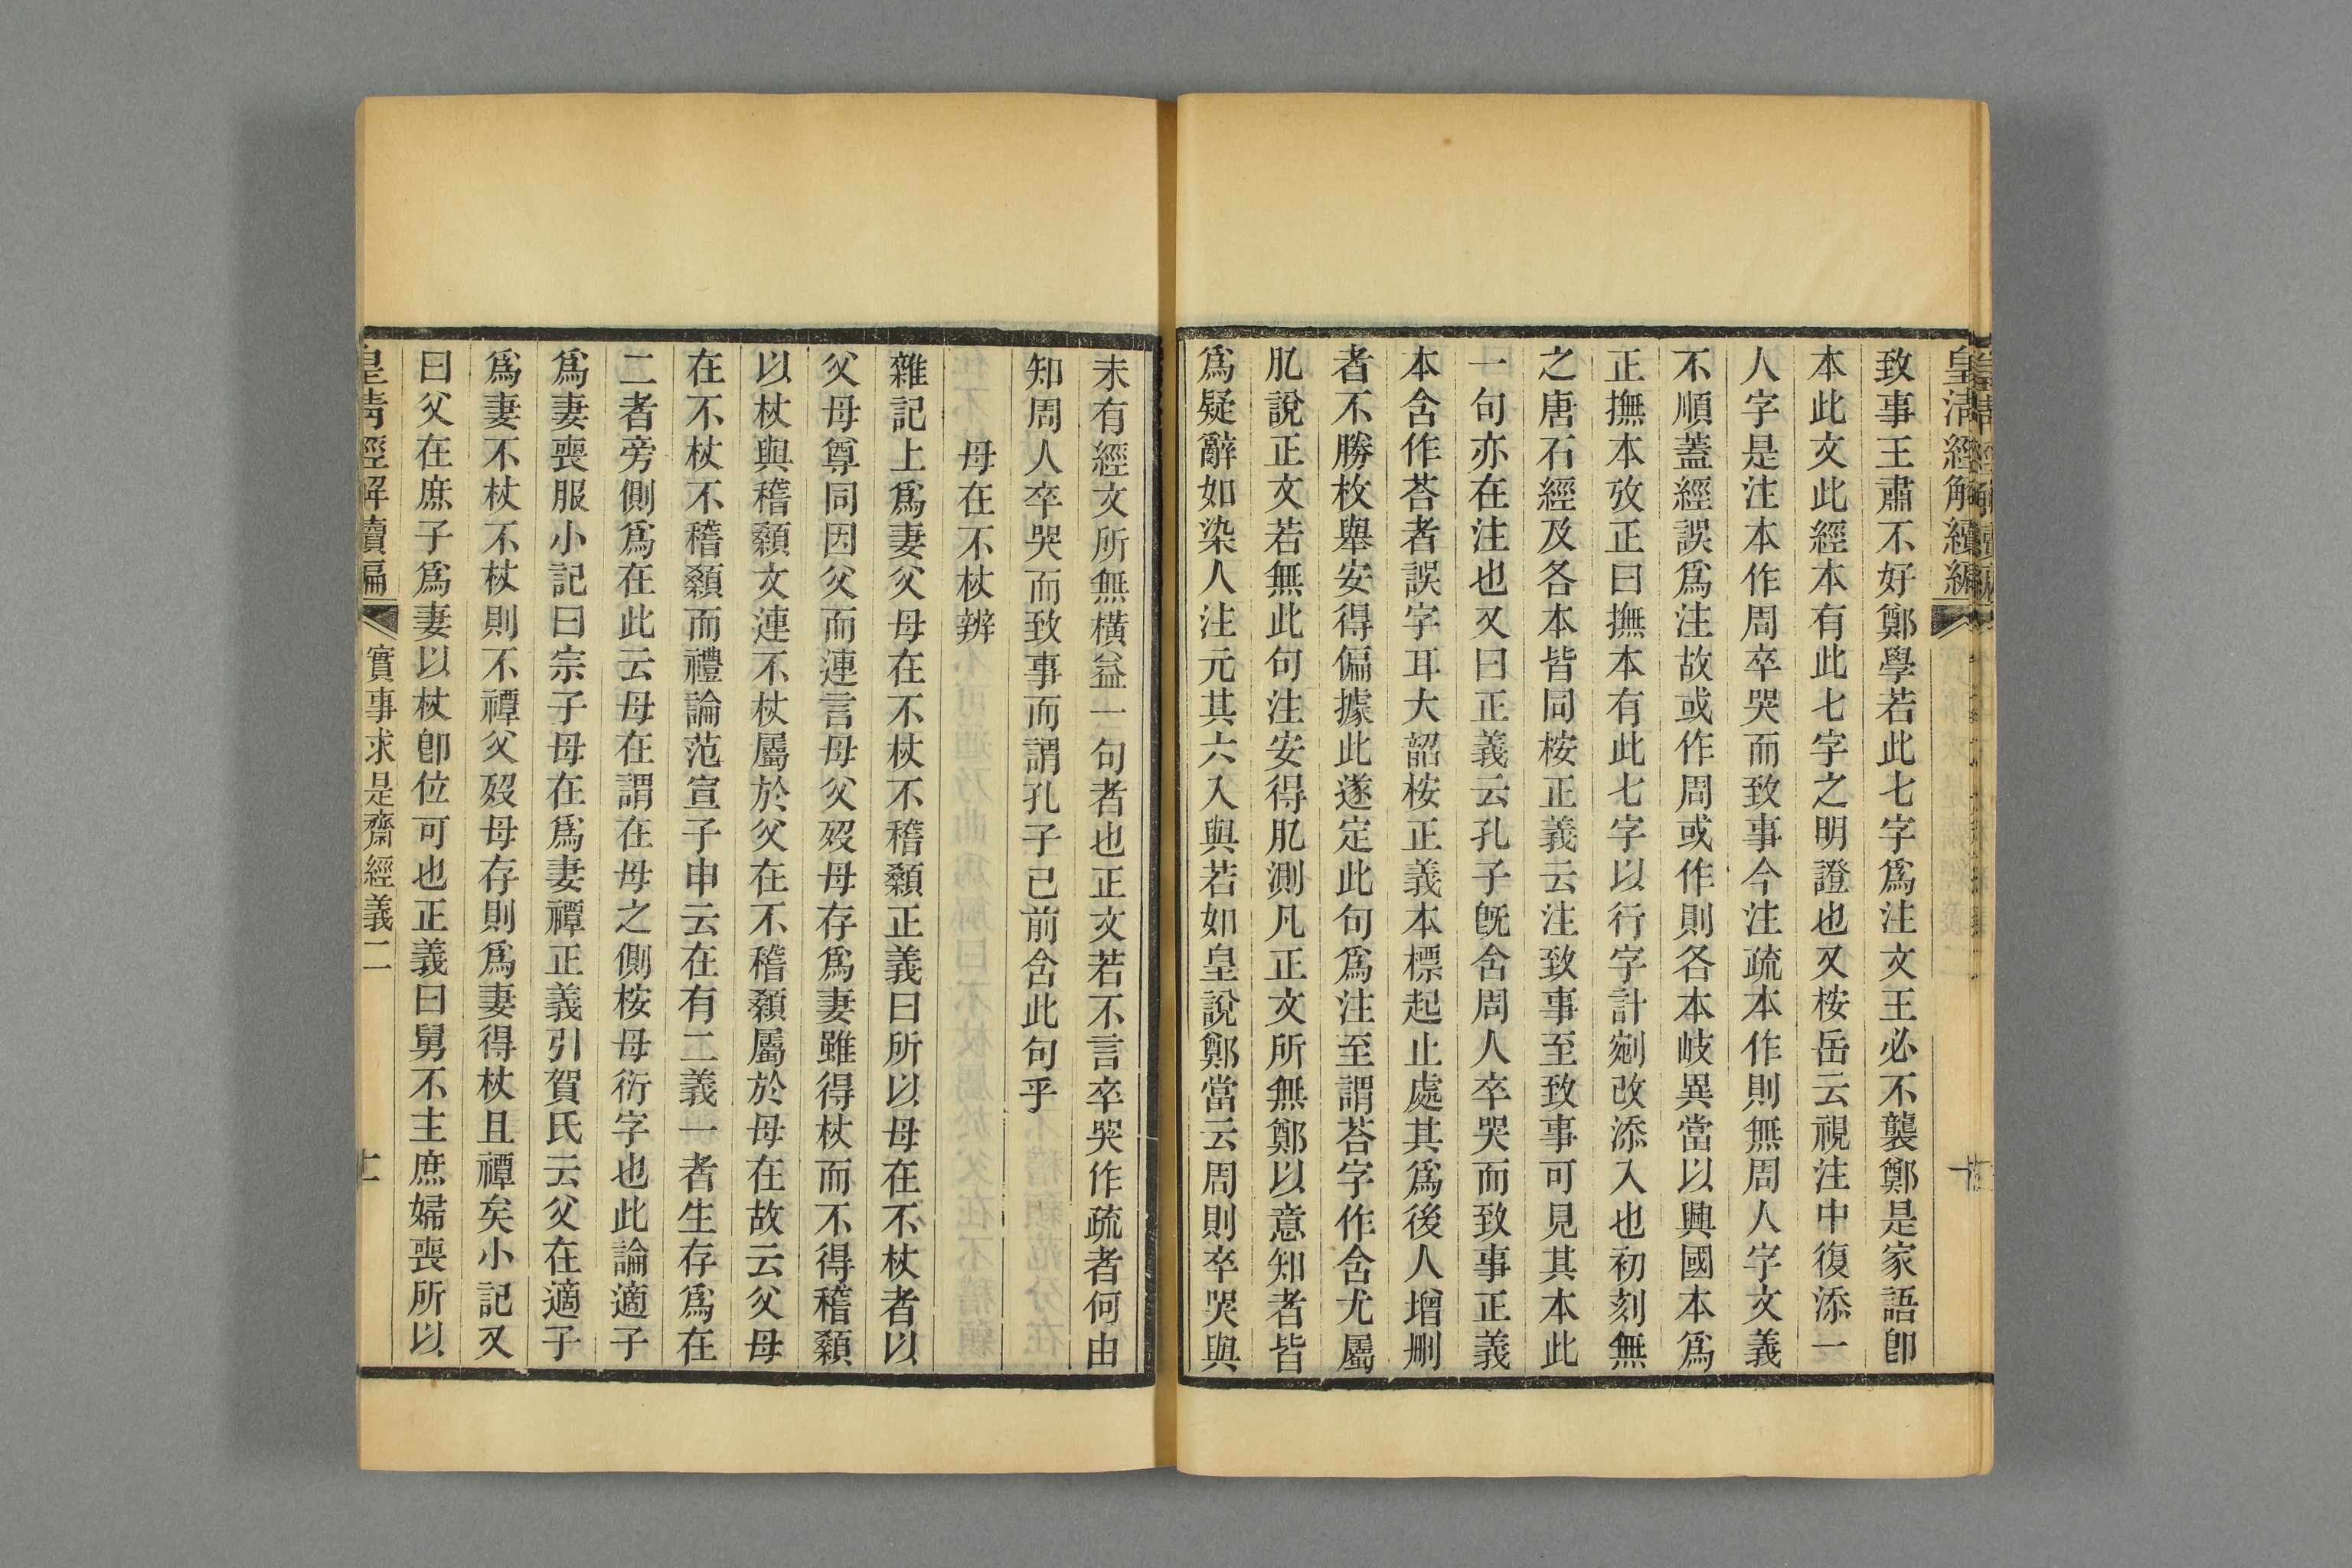 皇清經解續編
致事王肅不好鄭學若此七字爲注文王必不襲鄭是家語卽
本此文此經本有此七字之明證也又桉岳云視注中復添一
人字是注本作周卒哭而致事今注疏本作則無周人字文義
不順蓋經誤爲注故或作周或作則各本岐異當以興國本爲
正撫本攷正曰撫本有此七字以行字計剜改添入也初刻無
之唐石經及各本皆同桉正義云注致事至致事可見其本此
一句亦在注也又曰正義云孔子旣舍周人卒哭而致事正義
本含作荅者誤字耳大韶桉正義本標起止處其爲後人增刪
者不勝枚舉安得偏據此遂定此句爲注至謂荅字作含尤屬
肊說正文若無此句注安得肊測凡正文所無鄭以意知者皆
爲疑辭如染人注元其六入與若如皇說鄭當云周則卒哭與
未有經文所無橫益一句者也正文若不言卒哭作疏者何由
知周人卒哭而致事而謂孔子已前含此句乎
母在不杖辨
雜記上爲妻父母在不杖不稽顙正義曰所以母在不杖者以
父母尊同因父而連言母父歿母存爲妻雖得杖而不得稽顙
以杖與稽顙文連不杖屬於父在不稽顙屬於母在故云父母
在不杖不稽顙而禮論范宣子申云在有二義一者生存爲在
二者旁側爲在此云母在謂在母之側桉母衍字也此論適子
爲妻喪服小記曰宗子母在爲妻禫正義引賀氏云父在適子
爲妻不杖不杖則不禫父歿母存則爲妻得杖且禫矣小記又
曰父在庶子爲妻以杖卽位可也正義曰舅不主庶婦喪所以
皇清經解續編 實事求是齋經義二